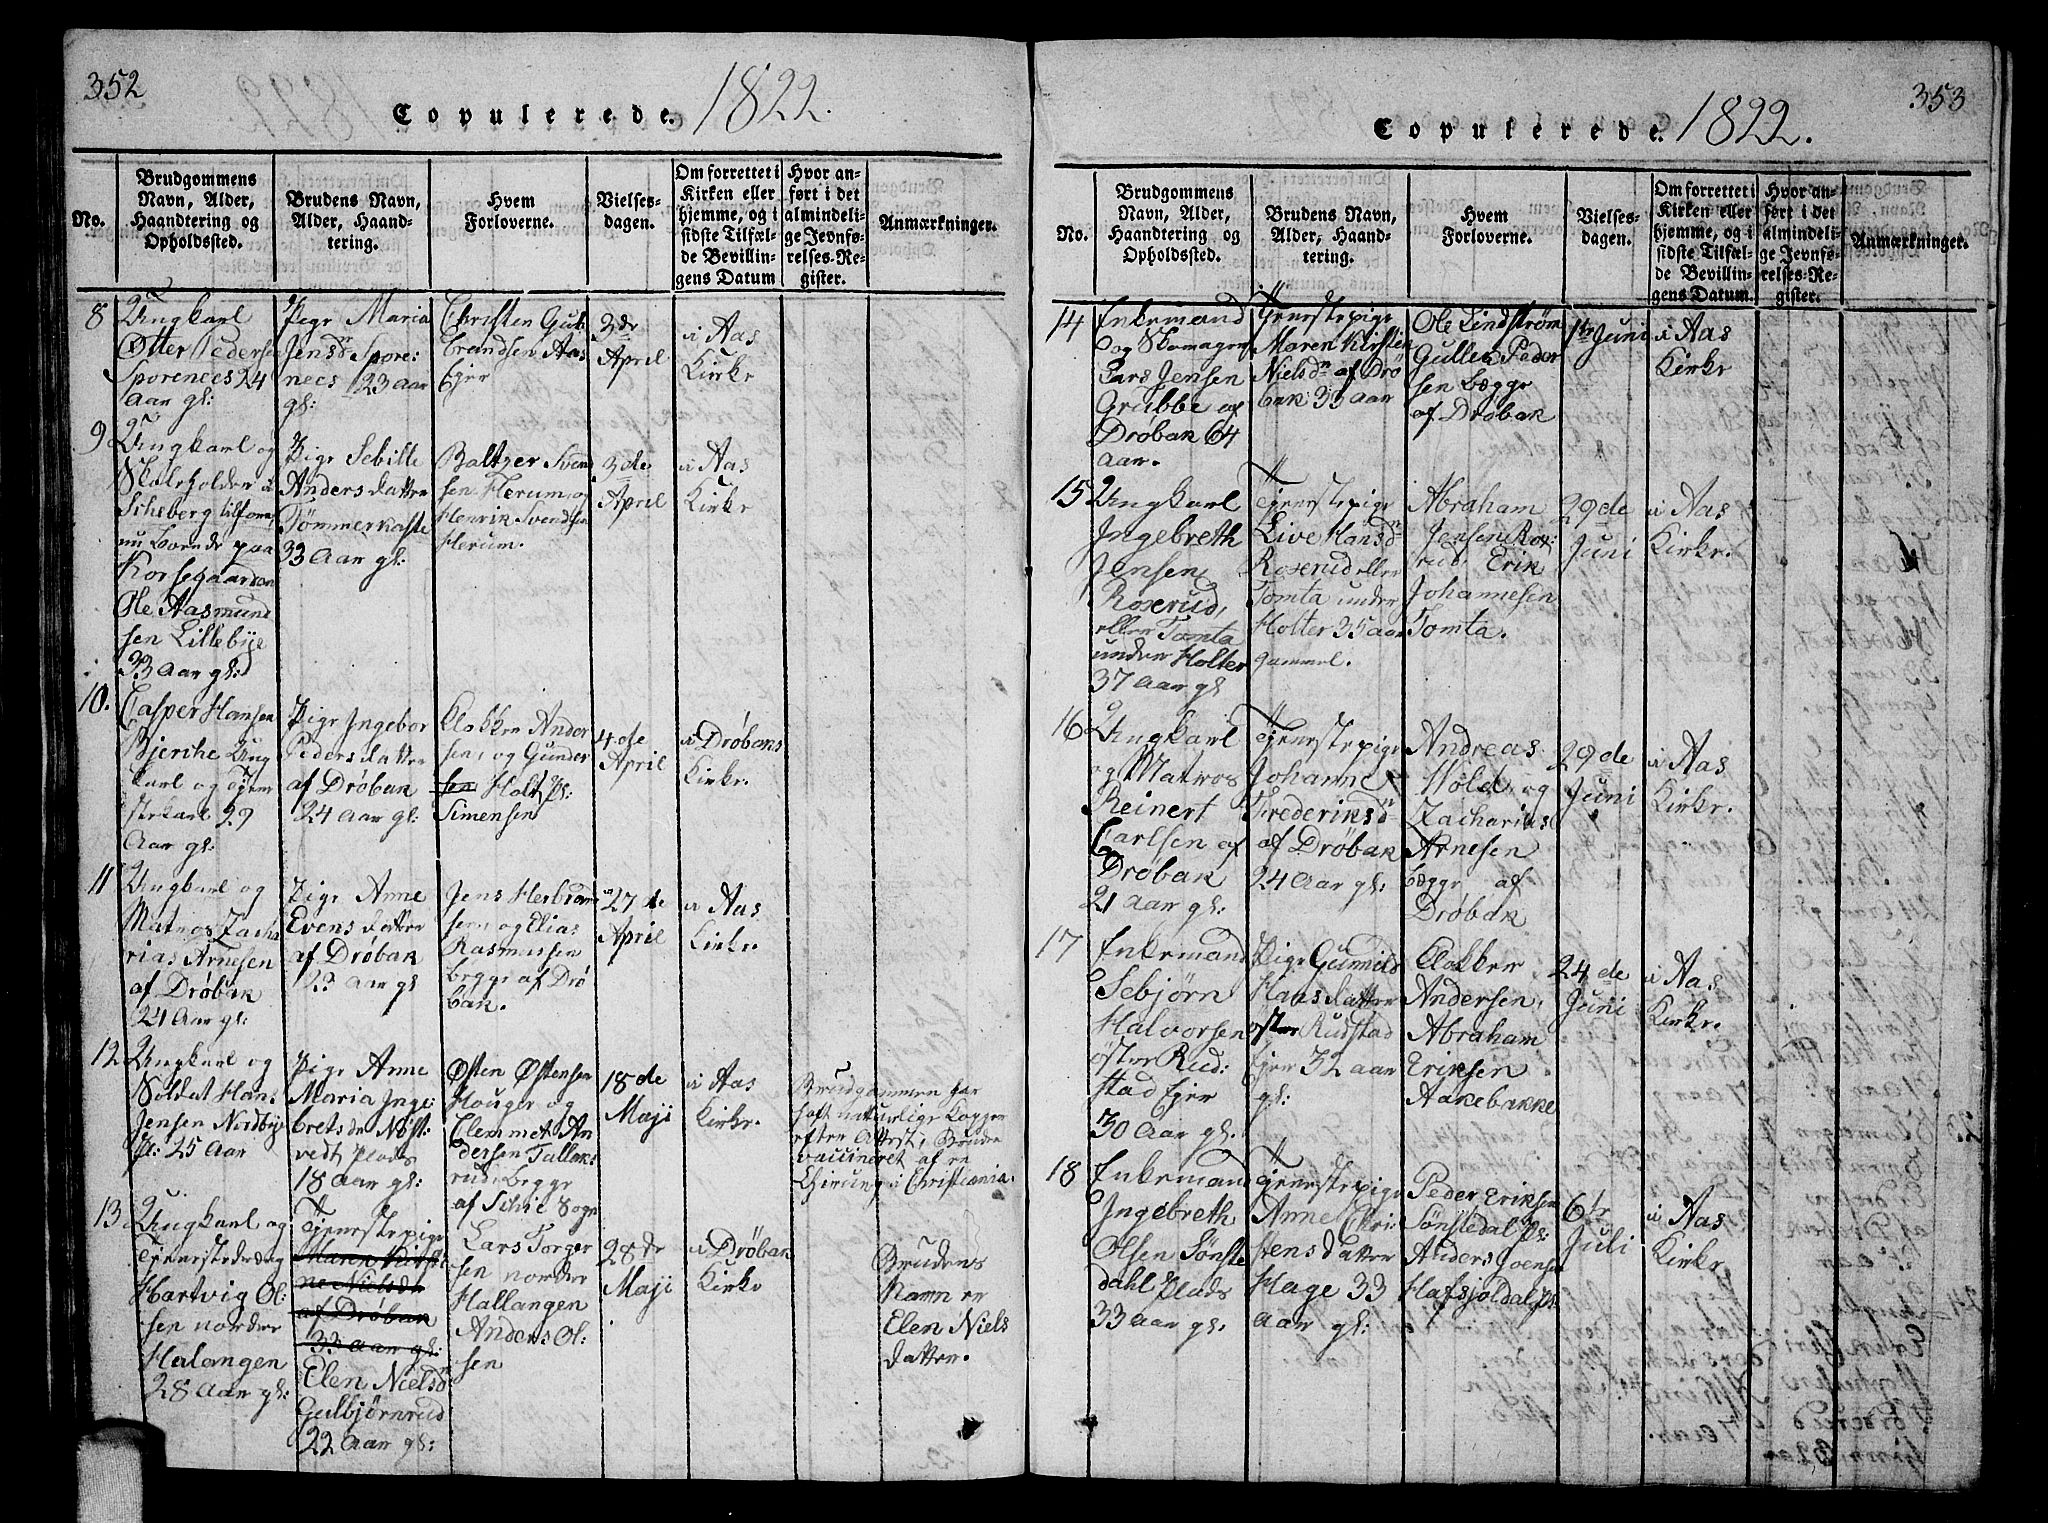 352
Copulerede. 1822.
No.
Brudgommens
Navn, Alder,
Haandtering og
Opholdssted.
Brudens Navn,
Alder, Haand-
tering.
Hvem
Forloverne.
Vielses-
dagen.
Om forrettet i
Kirken eller
hjemme, og i
sidste Tilfæl-
de Bevillin-
gens Datum
Hvor an-
ført i det
almindeli-
ge Jevnfø-
relses-Re-
gister.
Anmærkninger.
8
Ungkarl
Otter Pedersen
Sporenees 24
Aar gl:
Pige Maria
Jensdr Spore:
nees 23 Aar
gl:
Christen Gul
brandsen Aas
Ejer
3de
April
i Aas
Kirke
9
Ungkarl og
Skoleholder i
Scheberg tilforn,
nu boende paa
Korsegaarden
Ole Aasmund
sen Lillebye
33 Aar gl:
Pige Sebille
Andersdatter
Tømmerkaste
33 Aar gl:
Baltzer Svend
sen Herum, og
Henrik Svendsen
Herum.
3de
April
i Aas
Kirke
10.
Casper Hansen
Bjerche Ung
karl og Tjene
stekarl 29
Aar gl:
Pige Ingebor
Pedersdatter
af Drøbak
24 Aar gl:
Clokker Ander
sen, og Gunder
sen Holt, Pl:
Simensen
4de
April
i Drøbaks
Kirke.
11
Ungkarl og
Matros Zacha
rias Arnesen
af Drøbak
24 Aar gl:
Pige Anne
Evensdatter
af Drøbak
23 Aar gl
Jens Herbran
sen og Elias
Rasmussen
begge af Drø
bak.
27de
April
i Aas
Kirke.
12
Ungkarl og
Soldat Han
Jensen Nordbye
Pl: 25 Aar
Pige Anne
Maria Inge:
bretsdr Nøst:
vedt Plads
18 Aar gl:
Østen Østensen
Houger og
Clemmet An
dersen Tallak
rud, begge
af Schie Sogn
18de
Maji
i Aas
Kirke.
Brudgommen har
haft naturlige Kopper
efter Attest, Bruden
vaccineret af en
Chirurg i Christiania.
13
Ungkarl og
Tjenestedreng
Hartvig Ol:
sen nordre
Halangen
28 Aar gl:
Tjenestepige
Maren Kirst
ne Nielsdr
af Drøbak
33 Aar gl:
Elen Nielsdr
Gulbjørnrud
22 Aar gl:
Lars Torger
sen nordre
Hallangen
Anders Ol:
sen
28de
Maji
i Drøbak
Kirke
Brudens
Navn er
Elen Niels
datter.
353
Copulerede. 1822.
No.
Brudgommens
Navn, Alder,
Haandtering og
Opholdssted.
Brudens Navn,
Alder, Haand-
tering.
Hvem
Forloverne.
Vielses-
dagen.
Om forrettet i
Kirken eller
hjemme, og i
sidste Tilfæl-
de Bevillin-
gens Datum.
Hvor an-
ført i det
almindeli-
ge Jevnfø-
relses-Re-
gister.
Anmærkninger.
14
Enkemand
og Skomager
Lars Jensen
Grubbe af
Drøbak 64
aar.
Tjenestepige
Maren Kirstin
Nielsdr af Drø
bak 33 Aar
Ole Lindstrøm
Gullek Peder
sen begge
af Drøbak
1te Juni
i Aas
Kirke
15
Ungkarl
Ingebreth
Jensen
Roxerud,
eller Tomta
under Holter
37 Aar gl
Tjenestepige
Live Hansdr
Roxerud eller
Tomta under
Holter 35 aar
gammel.
Abraham
Jensen Rox:
rud, Erik
Johannesen
Tomta.
29de
Juni
i Aas
Kirke.
16
Ungkarl
og Matros
Reinert
Carlsen af
Drøbak
21 Aar gl:
Tjenestepige
Johanne
Frederiksdr
af Drøbak
24 Aar gl:
Andreas
Hold, og
Zacharias
Arnesen
begge af
Drøbak
29de
Juni
i Aas
Kirke.
17
Enkemand
Sebjørn
Halvorsen
øster Rud:
stad Ejer
30 Aar gl.
Pige Gunnild
Hansdatter
øster Rudstad
Ejer 32 aar
gl:
Clokker
Andersen,
Abraham
Eriksen
Aakebakke
24de
Juni
i Aas
Kirke.
18
Enkemand
Ingebreth
Olsen Sønste
dahl Plads
33 aar gl.
Tjenestepige
Anne Chri
stensdatter
Hage 33
aar gl:
Peder Eriksen
Sønstedal Pl:
Anders Joensen
Hafsjoldal Pl:
6te
Juli
i Aas
Kirke